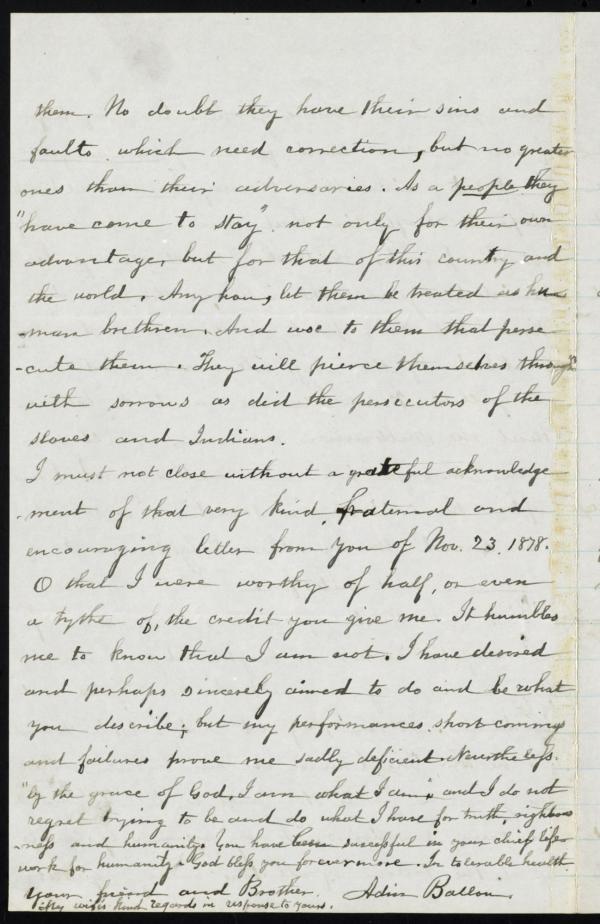 them. No doubt they have their sins and
faults which need correction, but no greater
ones than their adversaries. As a people they
"have come to stay" not only for their own
advantage, but for that of this country and
the world. Any how, let them be treated as hu-
-man brethren. And woe to them that perse
-cute them. They will pierce themselves through
with sorrows as did the persecutors of the
slaves and Indians.
I must not close without a grateful acknowledge
-ment of that very kind, fraternal and
encouraging letter from you of Nov. 23, 1878.
O that I were worthy of half, or even
a tythe of, the credit you give me. It humbles
me to know that I am not. I have desired
and perhaps sincerely aimed to do and be what
you describe; but my performances short comings
and failures prove me sadly deficient. Nevertheless.
"by the grace of God, I am what I am"; and I do not
regret trying to be and do what I have for truth, righteous
-ness and humanity. You have been successful in your chief life
work for humanity. God bless you forevermore. In tolerable health
Your friend and Brother. Adin Ballou.
My wife's kind regards in response to yours.